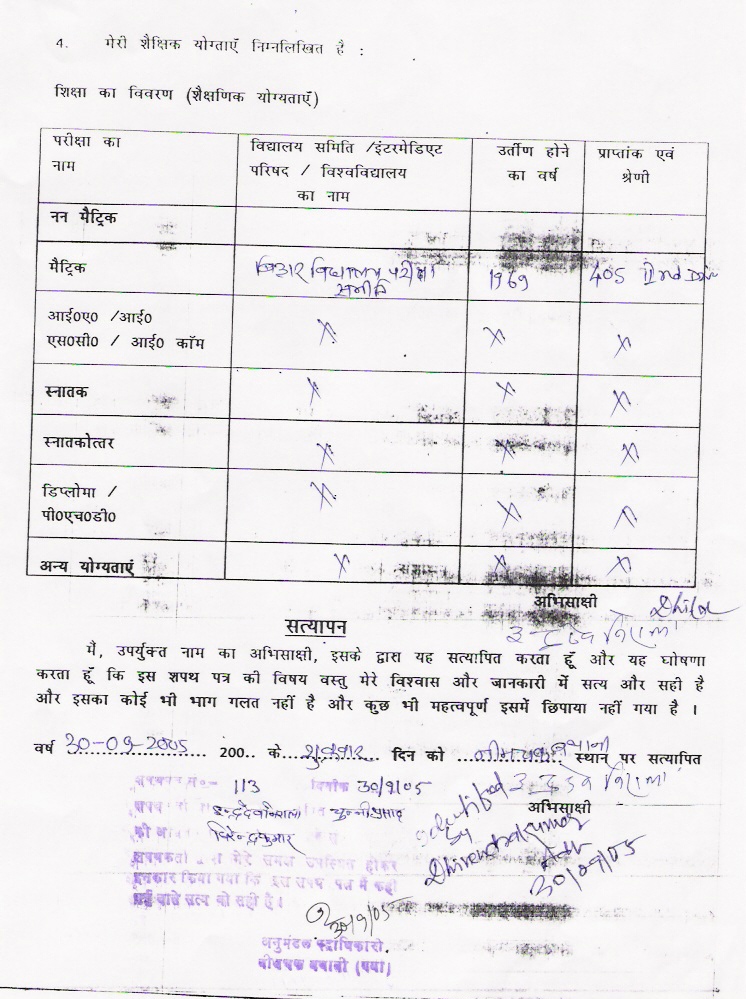 4. मेरी शैक्षिक योग्ताएँ निम्नलिखित है :
शिक्षा का विवरण (शैक्षणिक योग्यताएँ)
परीक्षा का नाम
विद्यालय समिति /इंटरमेडिएट
परिषद / विश्वविद्यालय
का नाम
उर्तीण होने
का वर्ष
प्राप्तांक एवं
श्रेणी
नन मैट्रिक
मैट्रिक
बिहार विद्यालय परीक्षा
समीति
1969
405 IInd Divi
आई०ए० /आई०
एस०सी० / आई० कॉम
X X X
स्नातक X X X
स्नातकोत्तर X X X
डिप्लोमा /
पी०एच०डी०
X X X
अन्य योग्यताएं X X X
अभिसाक्षी
सत्यापन
मैं, उपर्युक्त नाम का अभिसाक्षी, इसके द्वारा यह सत्यापित करता हूँ और यह घोषणा
करता हूँ कि इस शपथ पत्र की विषय वस्तु मेरे विश्वास और जानकारी में सत्य और सही है
और इसका कोई भी भाग गलत नहीं है और कुछ भी महत्वपूर्ण इसमें छिपाया नहीं गया है ।
वर्ष 30-09-2005 200.. के शुक्रवार दिन को नीमचक बथानी स्थान पर सत्यापित
113 दिनांक 30/9/05
अभिसाक्षी
Dhirendra Kumar
Adv
30/09/05
30/9/05
अनुमंडल पदाधिकारी
नीमचक बथानी (गया)